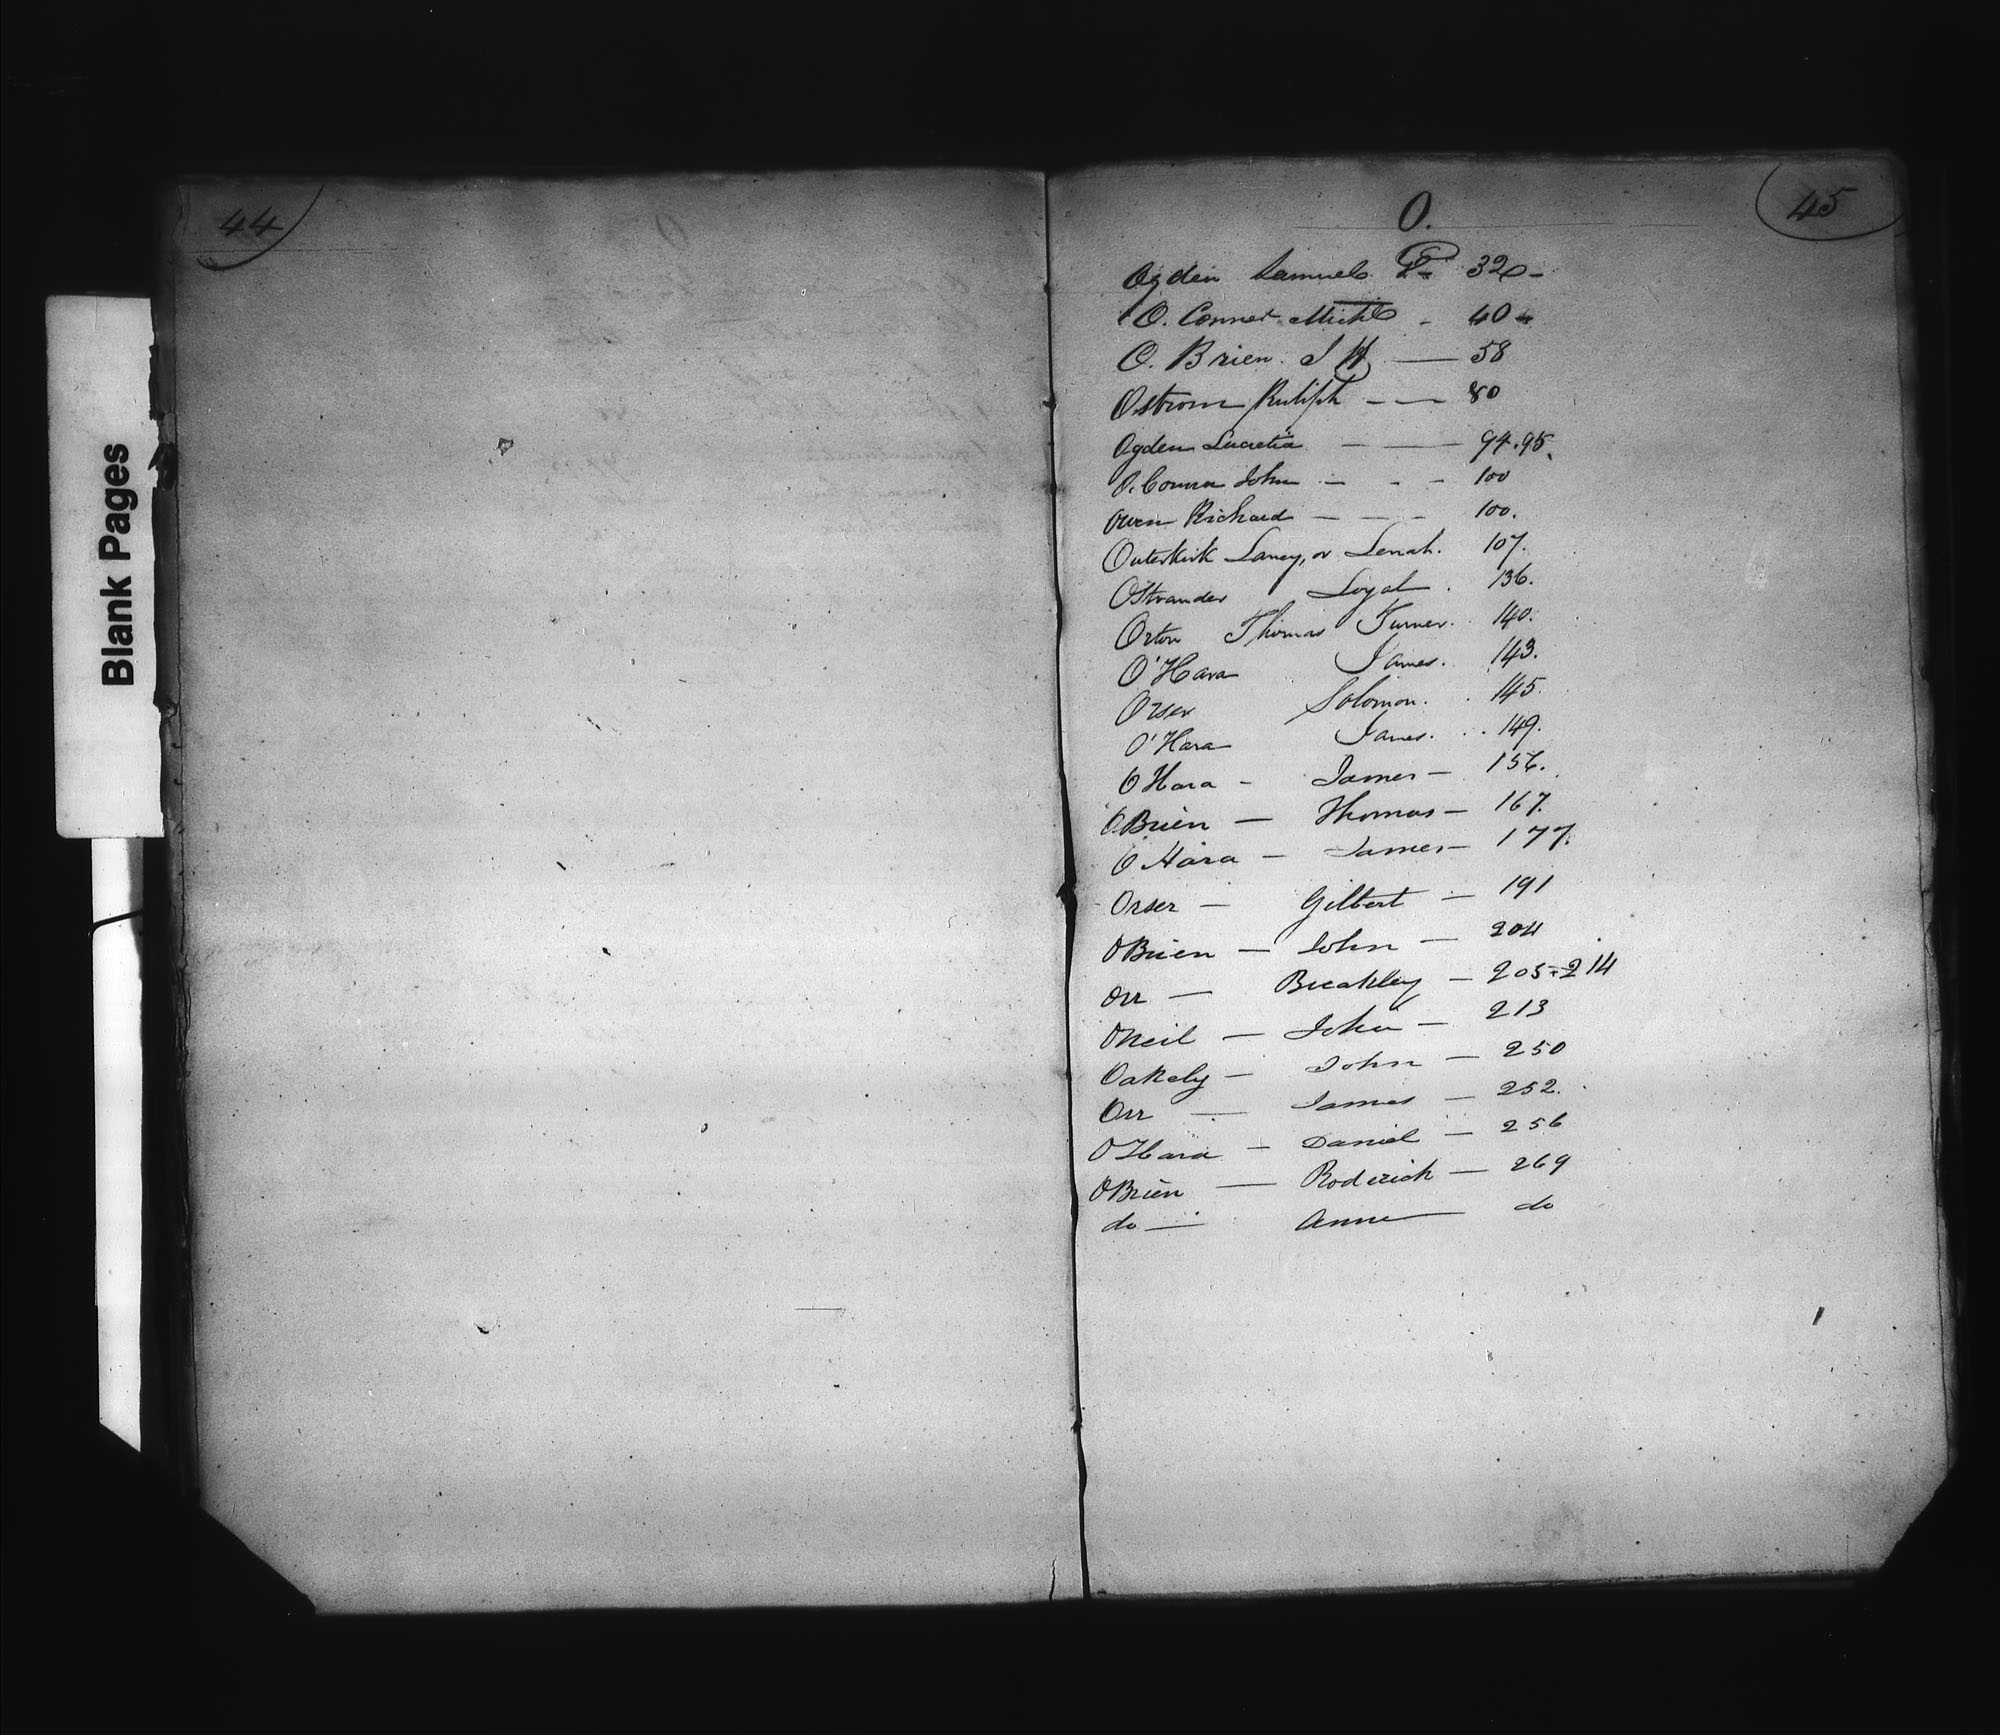 Blank Pages
44
45
O.
Ogden Samuel P. 32 -
O. Conner Michl - 40
O. Brien J H — 58
Ostrom Ruliph — — 80
Ogden Lucretia — — 94.95.
O. Connor John — - - 100
Owen Richard — — - 100.
Outerkirk Laney, or Lenah. 107.
Ostrander Loyal . 136.
Orton Thomas Turner. 140.
O'Hara James. 143.
Orser Solomon. . 145.
O'Hara James. . . 149.
O Hara - James — 156.
O Brien — Thomas — 167.
O Hara — James — 177.
Orser — Gilbert — 191
O Brien — John — 204
Orr — Breakley — 205+214
O Neil — John — 213
Oakely — John — 250
Orr — James — 252.
O Hara — Daniel — 256
O Brien — Roderick — 269
do — Anne — do